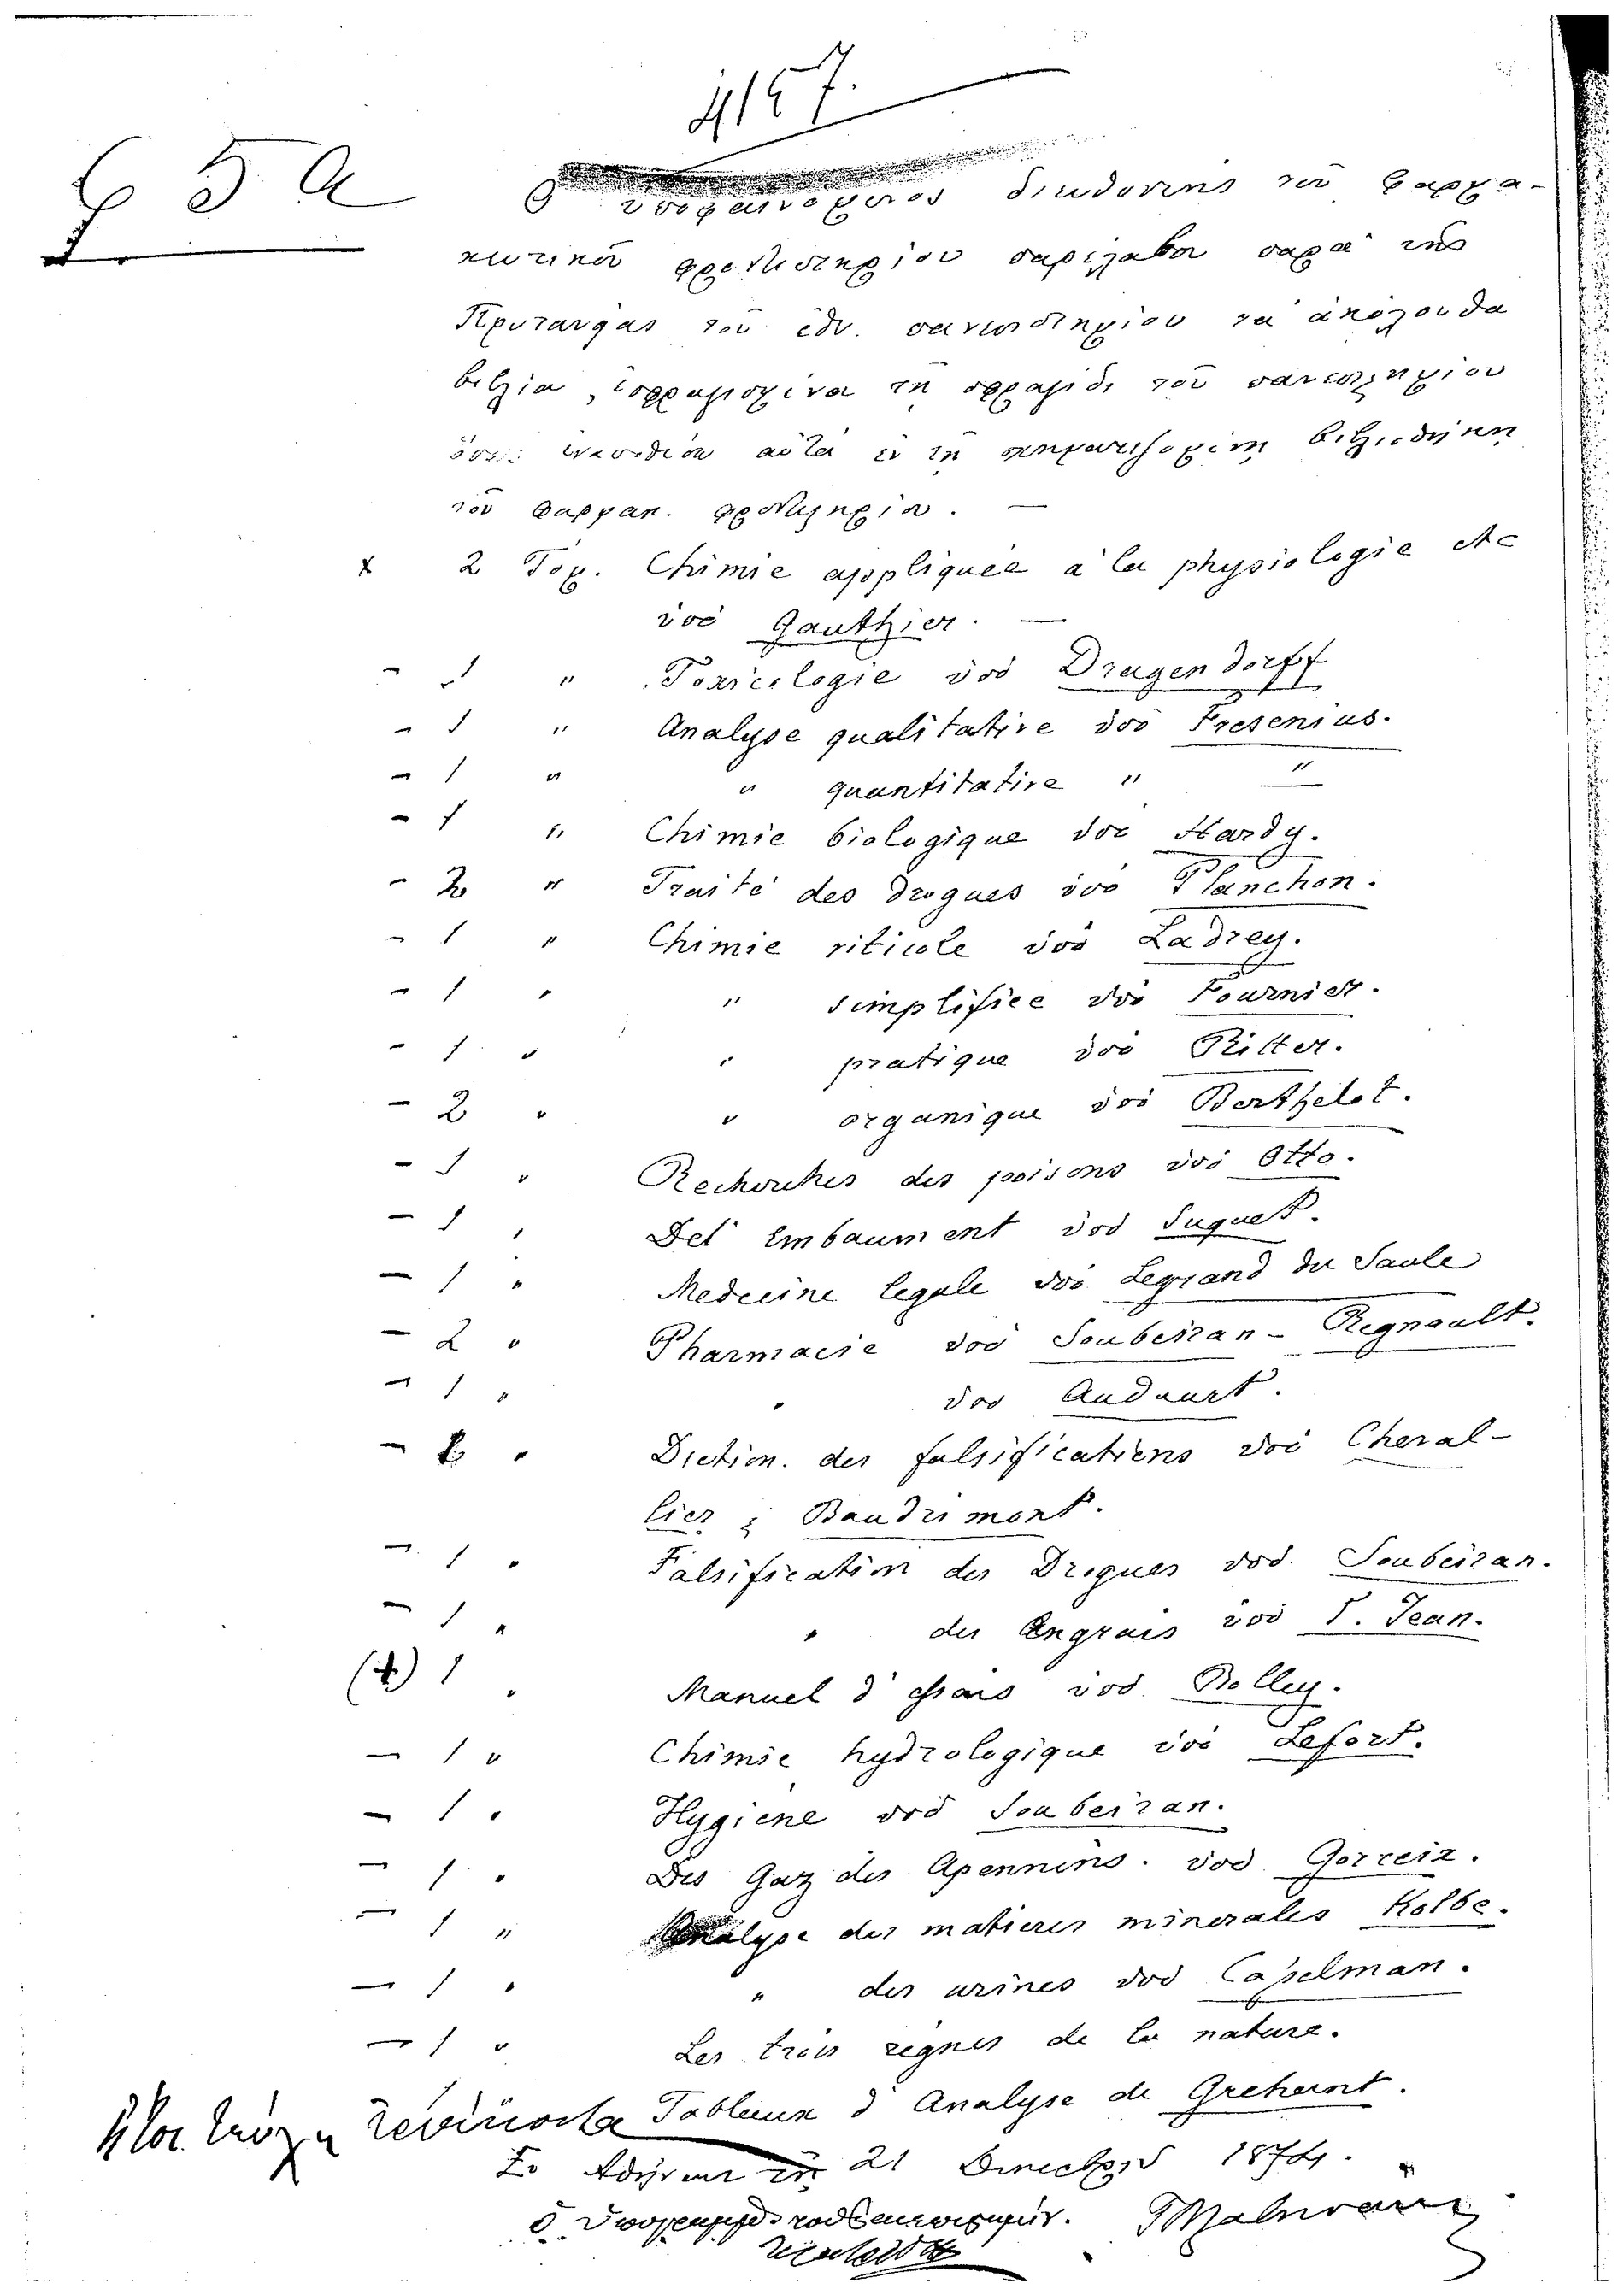 4157.
Ο ὑποφαινόμενος διευθυντὴς τοῦ Φαρμα-
κευτικοῦ φροντιστηρίου παρέλαβον παρὰ τῆς
Πρυτανείας τοῦ ἐθν. πανεπιστημίου τὰ ἀκόλουθα
βιβλία, ἐσφραγισμένα τῇ σφραγῖδι τοῦ πανεπιστημίου
αὐτὰ ἐν τῇ σχηματιζομένῃ βιβλιοθήκῃ
τοῦ Φαρμακ. φροντιστηρίου. —
x 2 Τόμ. Chimie appliquée à la physiologie etc
ὑπὸ Gauthier. —
- 1 " Toxicologie ὑπὸ Dragendorff
- 1 " Analyse qualitative ὑπὸ Fresenius.
- 1 " " quantitative " "
- 1 " Chimie biologique ὑπὸ Hardy.
- 2 " Traité des drogues ὑπὸ Planchon.
- 1 " Chimie viticole ὑπὸ Ladrey.
- 1 " " simplifiee ὑπὸ Fournier.
- 1 " " pratique ὑπὸ Ritter.
- 2 " " organique ὑπὸ Berthelot.
- 1 " Recherches des poisons ὑπὸ Otto.
- 1 " Del' Embaument ὑπὸ Suquet.
- 1 " Medecine legale ὑπὸ Legrand du Saule
- 2 " Pharmacie ὑπὸ Soubeiran - Regnault.
- 1 " " ὑπὸ Andouart.
- " Diction. des falsifications ὑπὸ Cheval-
lier & Baudrimont.
- 1 " Falsification des Drogues ὑπὸ Soubeiran.
- 1 " " des Engrais ὑπὸ F. Jean.
1 " Manuel d'essais ὑπὸ Bolley.
- 1 " Chimie hydrologique ὑπὸ Lefort.
- 1 " Hygiene ὑπὸ Soubeiran.
- 1 " Des Gaz des Apennins. ὑπὸ Gorceix.
- 1 " Analyse des matieres minerales Kolbe.
- 1 " " des urines ὑπὸ Casselman.
- 1 " Les trois règnes de la nature.
Tableaux d'Analyse de Grehant.
Ἐν Ἀθήναις τῇ 21 Δεκεμβρίου 1874.